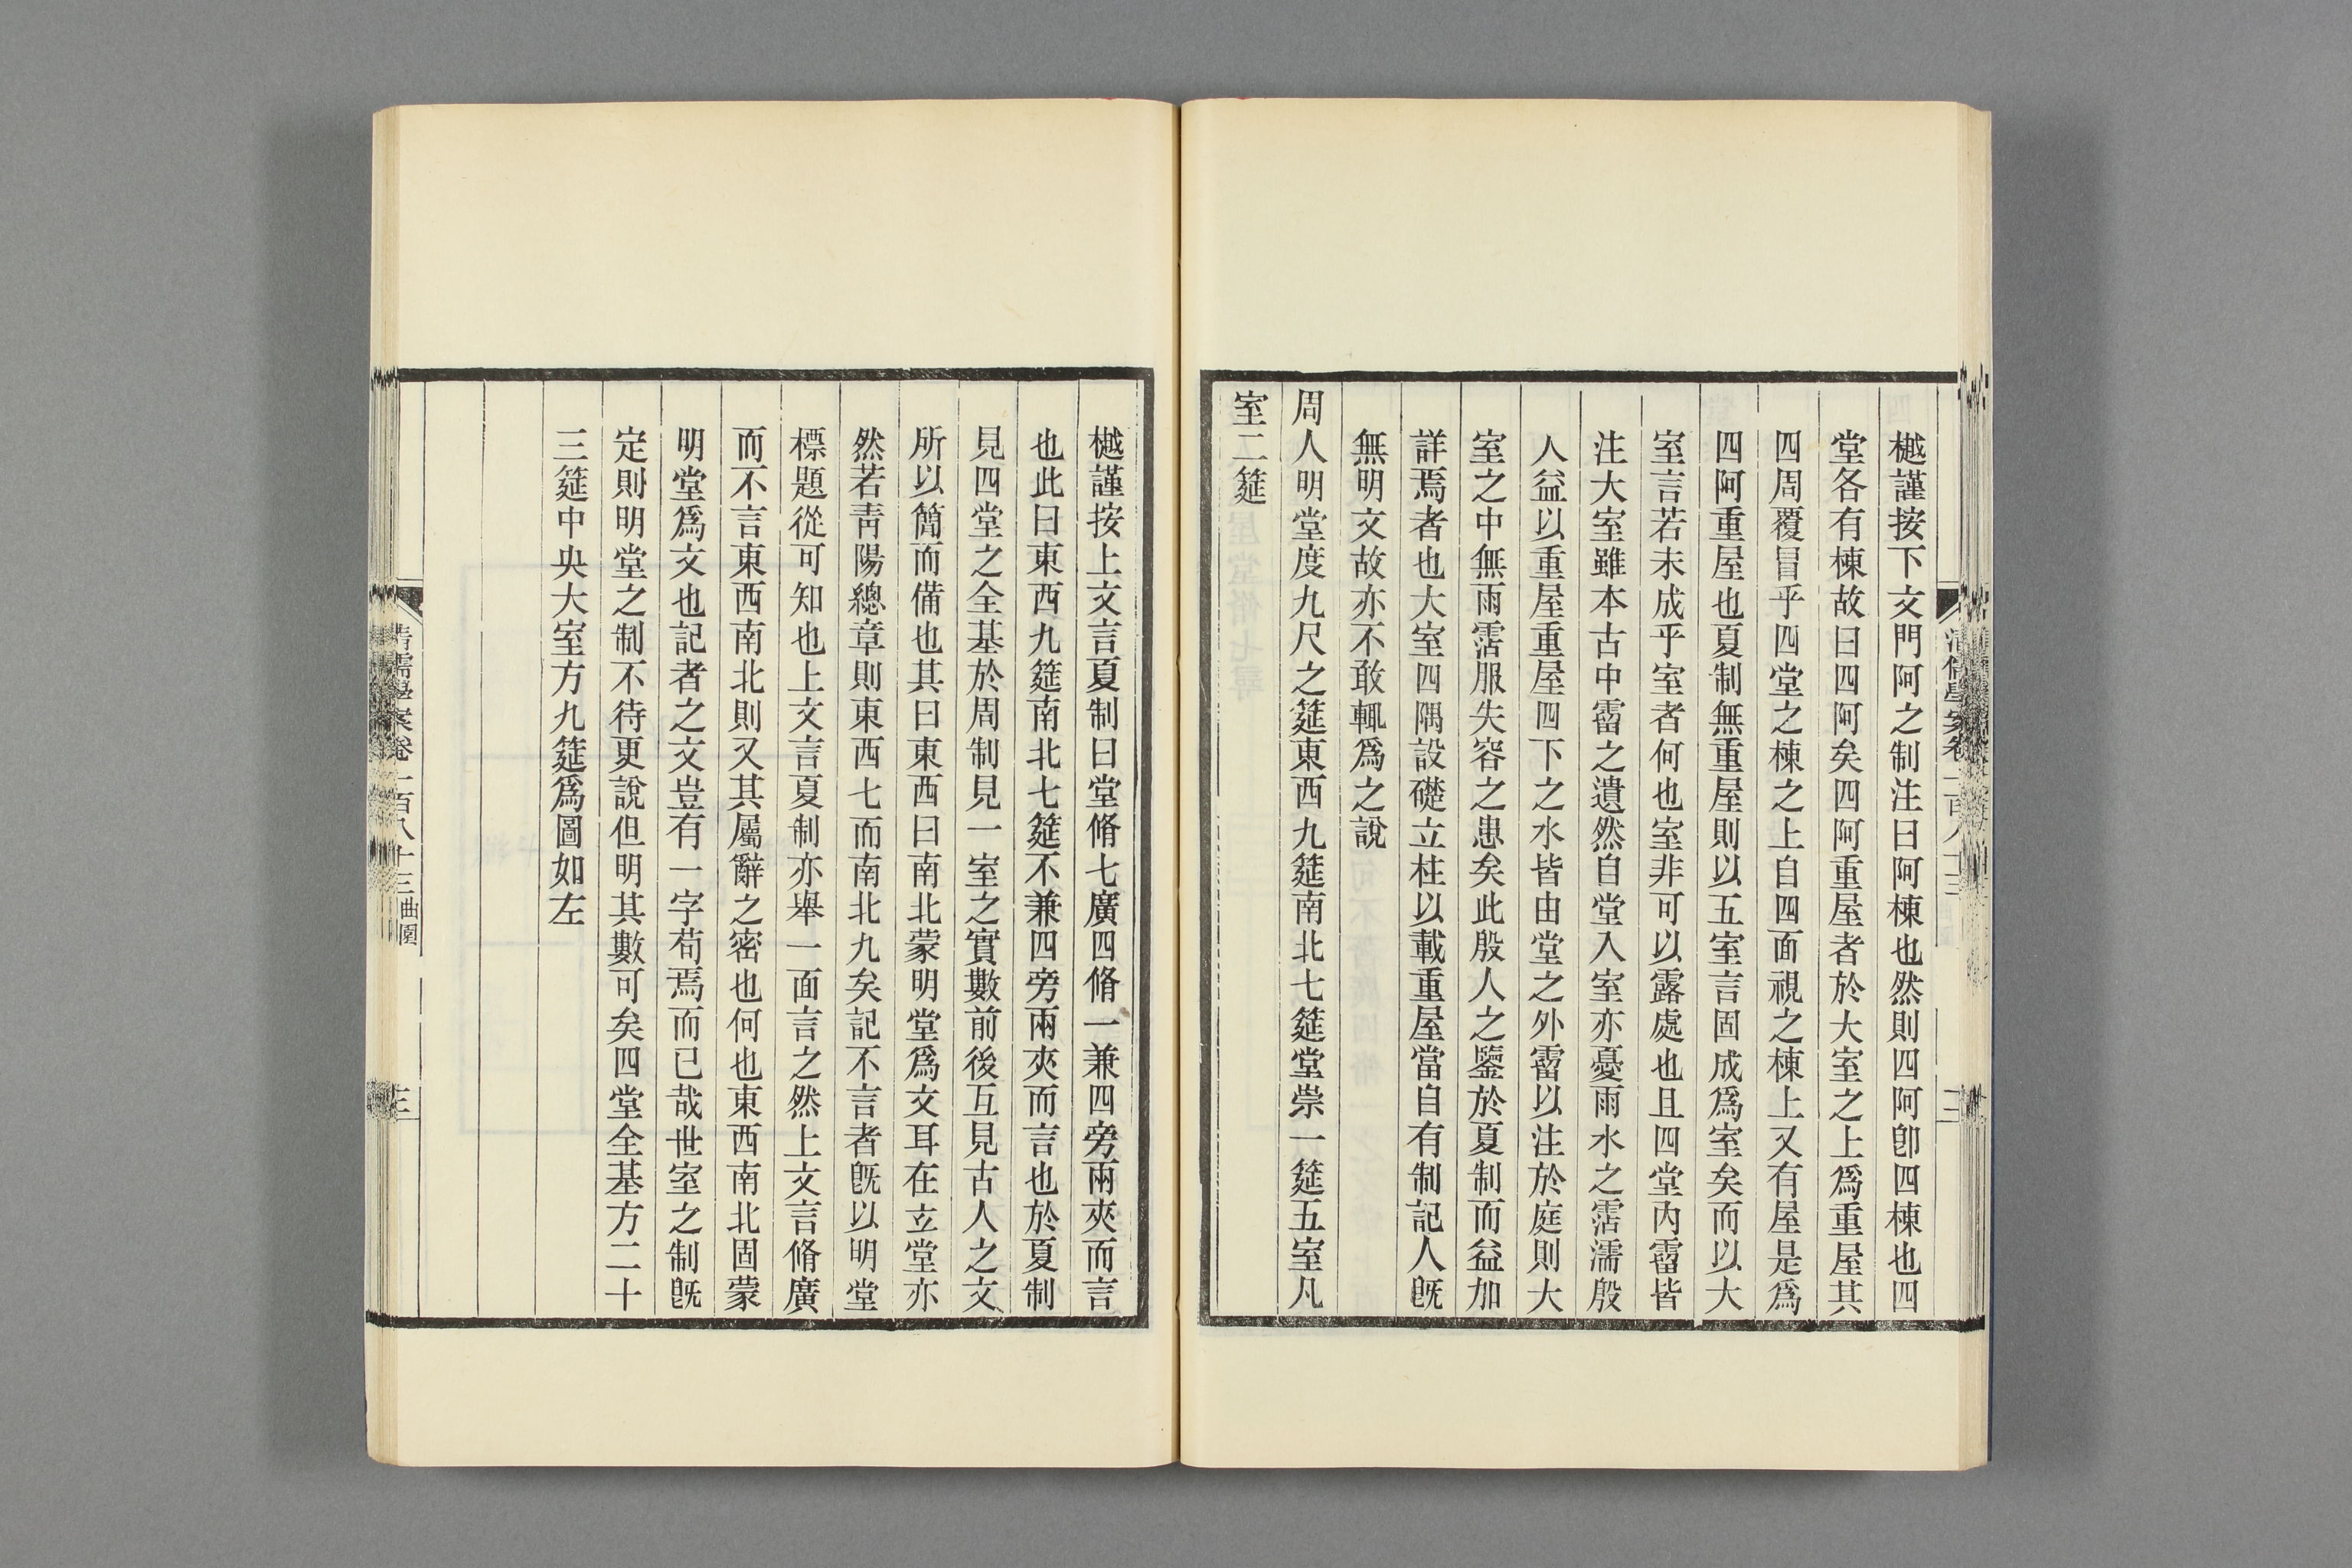 樾謹按下文門阿之制注曰阿棟也然則四阿卽四棟也四
堂各有棟故曰四阿矣四阿重屋者於大室之上爲重屋其
四周覆冒乎四堂之棟之上自四面視之棟上又有屋是爲
四阿重屋也夏制無重屋則以五室言固成爲室矣而以大
室言若未成乎室者何也室非可以露處也且四堂內霤皆
注大室雖本古中霤之遺然自堂入室亦憂雨水之霑濡殷
人益以重屋重屋四下之水皆由堂之外霤以注於庭則大
室之中無雨霑服失容之患矣此殷人之鑒於夏制而益加
詳焉者也大室四隅設礎立柱以載重屋當自有制記人旣
無明文故亦不敢輒爲之說
周人明堂度九尺之筵東西九筵南北七筵堂崇一筵五室凡
室二筵
樾謹按上文言夏制曰堂脩七廣四脩一兼四旁兩夾而言
也此曰東西九筵南北七筵不兼四旁兩夾而言也於夏制
見四堂之全基於周制見一室之實數前後互見古人之文
所以簡而備也其曰東西曰南北蒙明堂爲文耳在玄堂亦
然若靑陽總章則東西七而南北九矣記不言者旣以明堂
標題從可知也上文言夏制亦舉一面言之然上文言脩廣
而不言東西南北則又其屬辭之密也何也東西南北固蒙
明堂爲文也記者之文豈有一字苟焉而已哉世室之制旣
定則明堂之制不待更說但明其數可矣四堂全基方二十
三筵中央大室方九筵爲圖如左
清儒學案卷一百八十三曲園
三